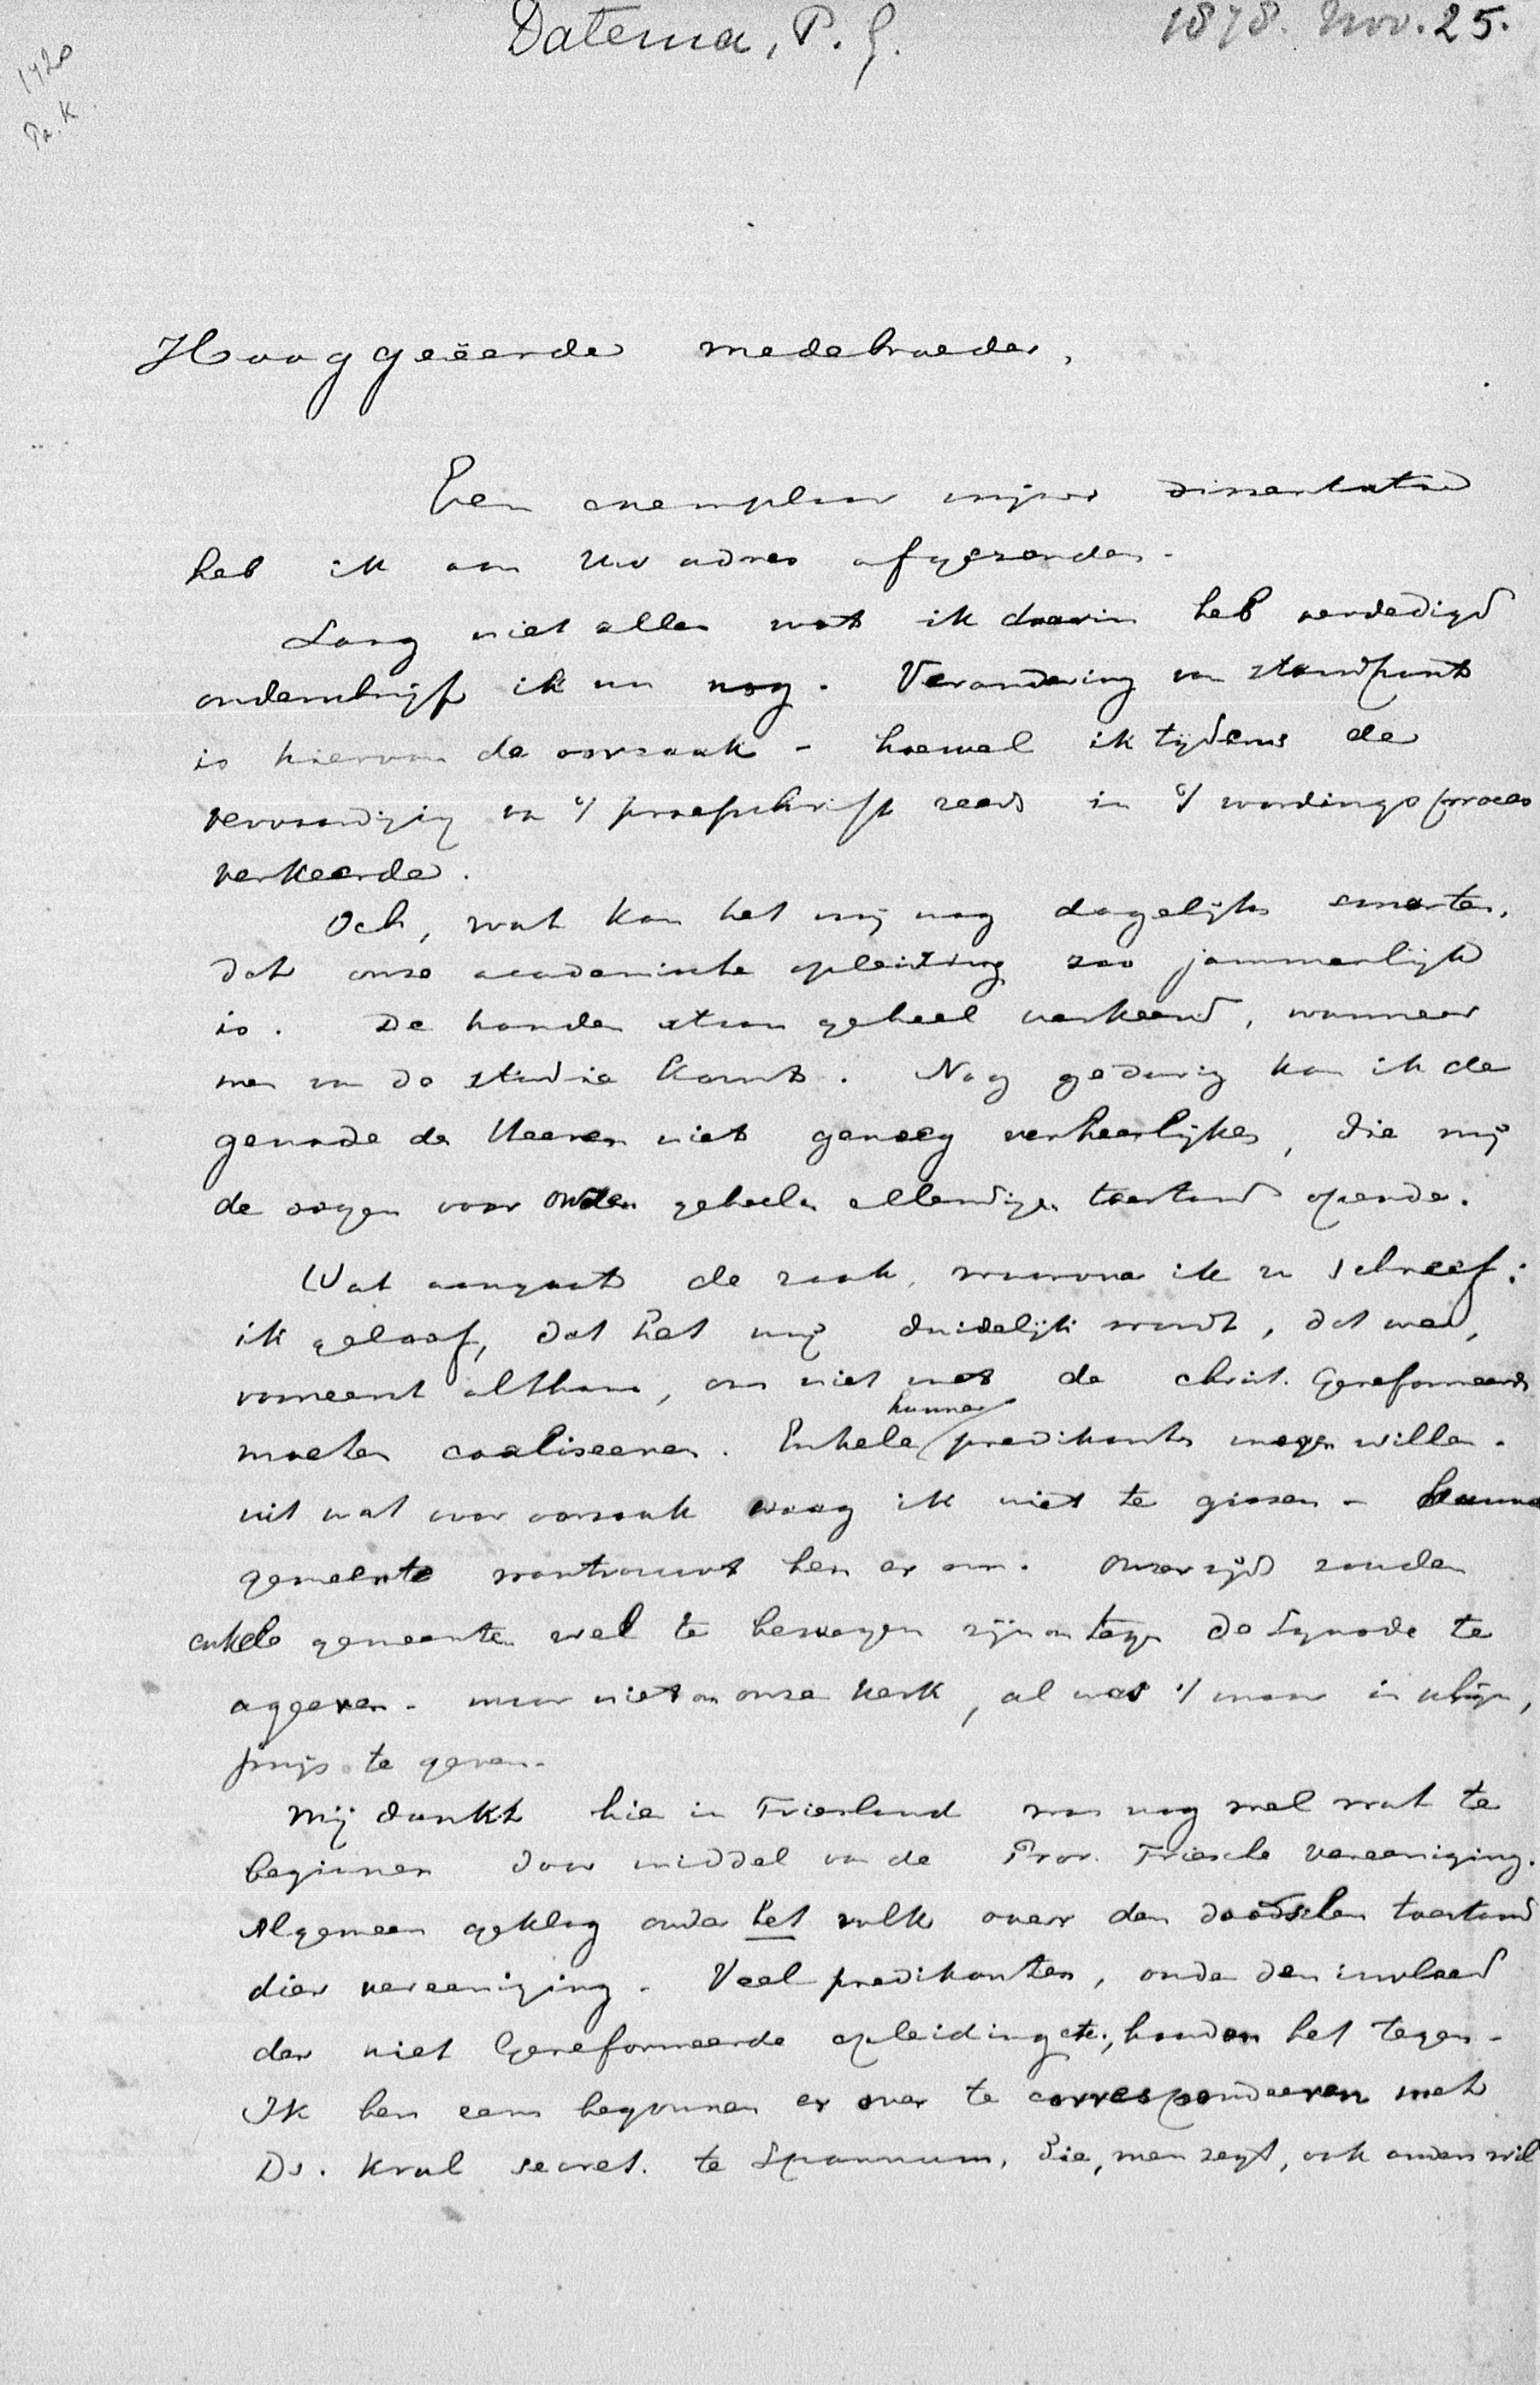 Datema, P. G.
1878. Nov. 25.
1420
Pa. K.
Hooggeëerde medebroeder,
Een exemplaar mijner dissertatie
heb ik aan Uw adres afgezonden.
Lang niet alles wat ik daarin heb verdedigd
onderschrijf ik nu nog. Verandering van standpunt
is hiervan de oorzaak - hoewel ik tijdens de
vervaardiging van 't proefschrift reeds in 't wordingsproces
verkeerde.
Och, wat kan het mij nog dagelijks smarten,
dat onze academische opleiding zoo jammerlijk
is. De handen staan geheel verkeerd, wanneer
men van de studie komt. Nog gedurig kan ik de
genade des Heeren niet genoeg verheerlijken, die mij
de oogen voor onzen geheelen ellendigen toestand opende.
Wat aangaat de zaak, waarover ik u schreef:
ik geloof, dat het mij duidelijk wordt, dat we,
vooreerst althans, ons niet met de christ. Gereformeerd
moeten coaliseeren. Enkele hunner predikanten mogen willen -
uit wat voor oorzaak waag ik niet te gissen - hunne
gemeente wantrouwt hen er om. Onzerzijds zouden
enkele gemeenten wel te bewegen zijn om tegen de Synode te
ageeren - maar niet om onze kerk, al was 't maar in schijn,
prijs te geven.
Mij dunkt hier in Friesland was nog wel wat te
beginnen door middel van de Prov. Friesche Vereeniging.
Algemeen geklag onder het volk over den doodschen toestand
dier vereeniging. Veel predikanten, onder den invloed
der niet Gereformeerde opleiding etc., houden het tegen.
Ik ben eens begonnen er over te correspondeeren met
Ds. Kral secret. te Spannum, die, men zegt, ook anders wil